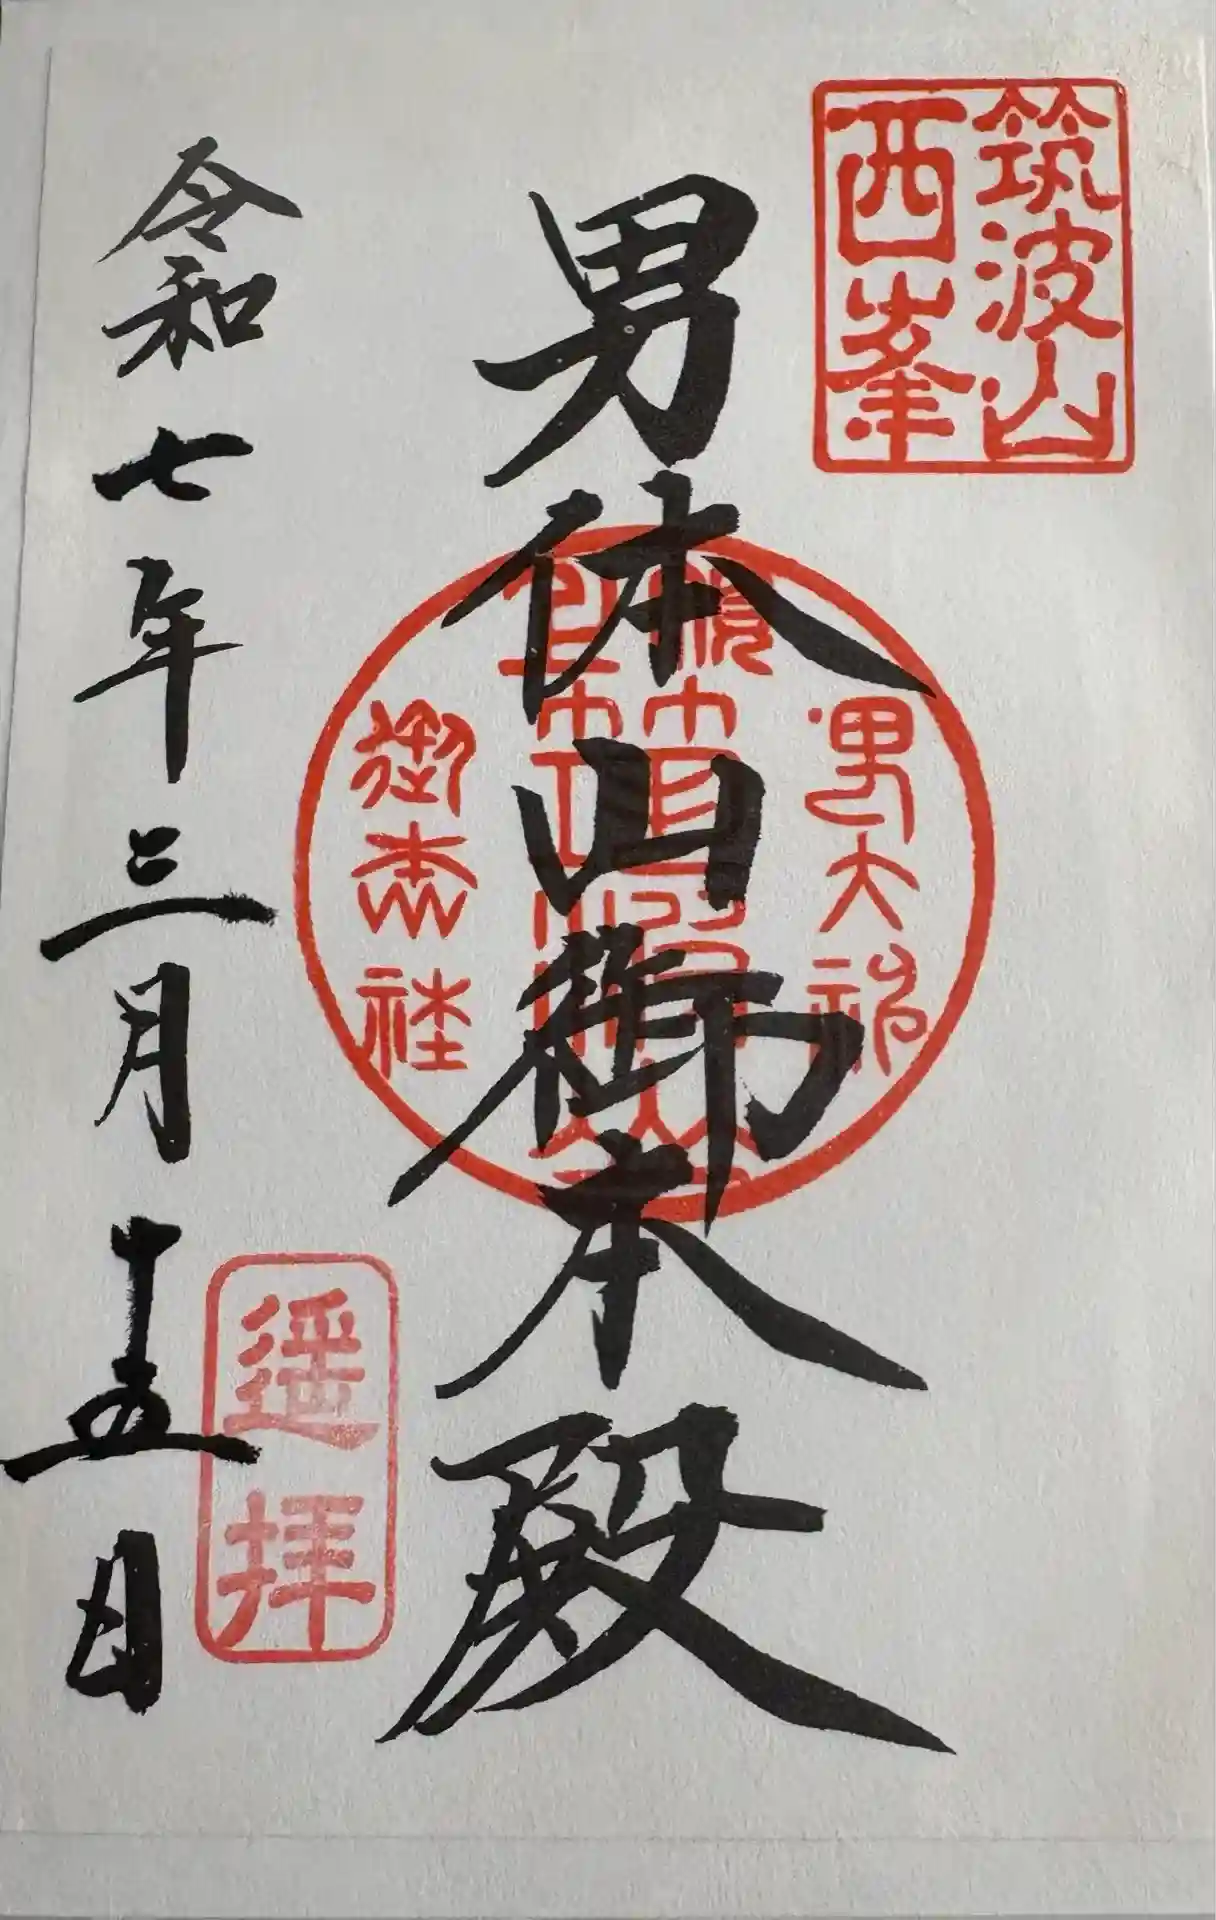 筑波山
西峯
男体山御本殿
男大神
御本社
令和七年三月十五日
遥拝